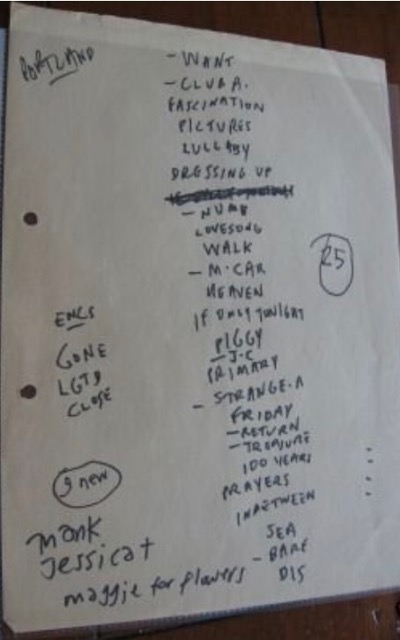 PORTLAND
- WANT
- CLUB A.
FASCINATION
PICTURES
LULLABY
DRESSING UP
- NUMB
LOVESONG
WALK
- M.CAR
HEAVEN
IF ONLY TONIGHT
PIGGY
- J.C
PRIMARY
- STRANGE.A
FRIDAY
- RETURN
- TREASURE
100 YEARS
PRAYERS
INBETWEEN
SEA
- BARE
DIS
25
ENCS
GONE
LGTD
CLOSE
9 new
mark
Jessicat
maggie for flowers